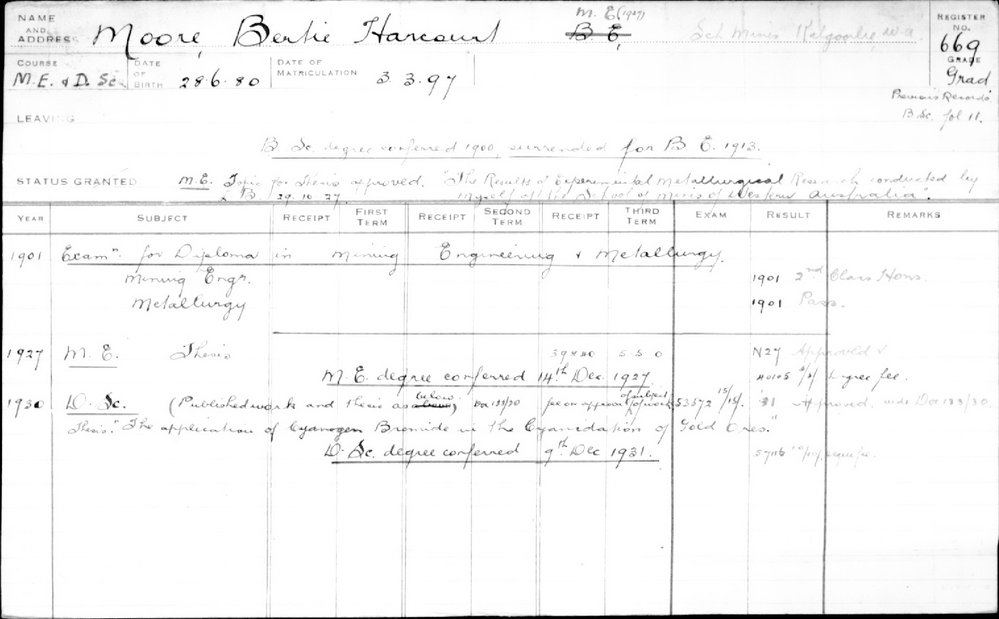 NAME AND ADDRESS Moore, Bertie Harcourt M.E. (1927) B E, Sch Mines Kalgoorlie, W.A. REGISTER No. 669
COURSE M.E. & D. Sc. DATE OF BIRTH 28.6.80 DATE OF MATRICULATION 3 3.97 GRADE Grad
Previous Records
B Sc. fol 11.
LEAVING
B Sc. degree conferred 1900, surrended for B E. 1913.
STATUS GRANTED M.E. Topic for Thesis approved. "The Results of Experimental Metallurgical Research conducted by
29.10.27. myself at the School of Mines of Western Australia".
YEAR SUBJECT RECEIPT FIRST TERM RECEIPT SECOND TERM RECEIPT THIRD TERM EXAM RESULT REMARKS
1901 Examn. for Diploma in Mining Engineering & Metallurgy.
Mining Engr. 1901 2nd Class Hons.
Metallurgy 1901 Pass.
1927 M.E. Thesis 5 5 0 N27 Approved
M.E. degree conferred 14th Dec. 1927. degree fee.
1930 D. Sc. (Published work and thesis as above below) Da 133/30 fee on approval of subject of work 53572 15/15/. 31 Approved. vide Da 133/30.
Thesis: "The application of Cyanogen Bromide in the Cyanidation of Gold Ores."
D. Sc. degree conferred 9th Dec 1931.